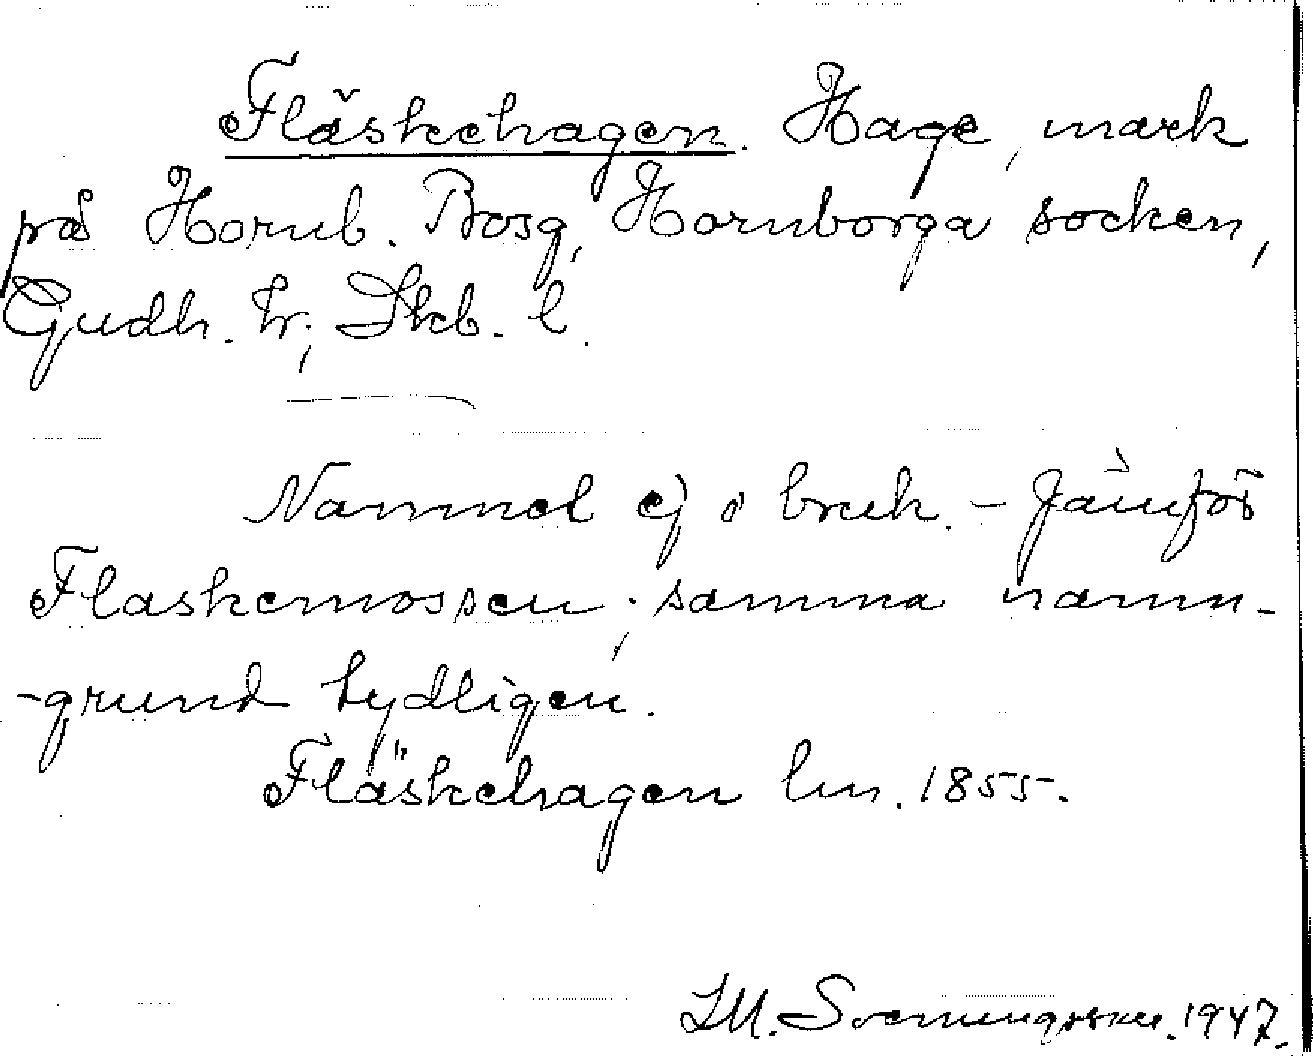 Fläskehagen. Hage, mark
på Hornb. Bosg, Hornborga socken,
Gudh. hr; Skb. l.
Namnet ej i bruk. - Jämför
Flaskemossen; samma namn-
-grund tydligen.
Fläskehagen lm. 1855.
Svenningsson. 1947.